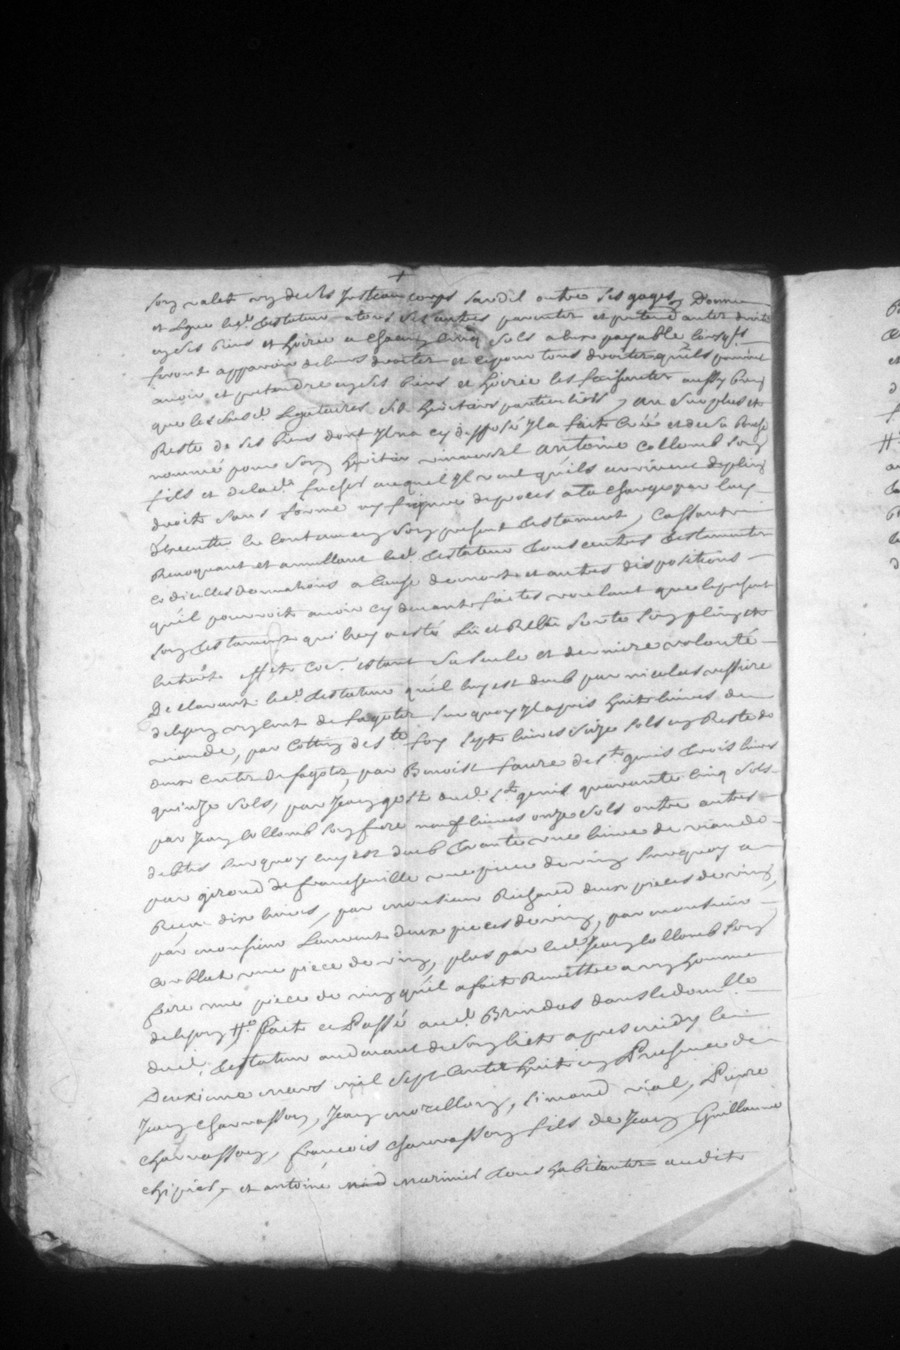 son valet un de ses Justeaucorps saudil outre ses gages, Donne
et Legue led. testateur a tous ses autres parentes et pretendantes droits
en ses biens et hoirie a chacun cinq sols a eux payable lorsqu'ils
feront apparoir de leurs droittes et ce pour tous droittes qu'ils pourroient
avoir et pretendre en ses biens et hoirie les faisantes aussy bien
que les susd. Legataires ses heritiers particuliers, au surplus et
Reste de ses biens dont Il na cy disposé Il a fait Créé et de sa bouche
nommé pour son heritier universel antoine Collomb son
fils et de lad. auquel Il veut qu'ils arrivent de plein
droit sans forme ny figure de proces a la charge par luy
d'executter le contenu en son present testament, Cassant
Revoquant et annullant led. testateur tous autres testamentes
Codicilles donnations a Cause de mort et autres dispositions
qu'il pourroit avoir cy devant faites voulant que le present
son testament qui luy a esté Lû et Relu sorte son plein et
entier effet car estant sa seule et derniere volonté
Declarant led. testateur qu'il luy est dub par nicolas
de fagotes surquoy Il a pris huit livres de
viande, par de ste foy sept livres seize sols en Reste de
deux centes de fagotes, par Benoist faure de st. genis trois livres
quinze sols, par Jean dud. st. genis quarante cinq sols
par Jean Collomb son frere neuf livres onze sols outre autres
dettes surquoy luy est dub trante une livre de viande
par giroud de francheville une piece de vin surquoy a
Receu dix livres, par monsieur Richard deux pieces de vin
par monsieur Laurent deux pieces de vin, par monsieur
une piece de vin, plus par led. Jean Collomb son
frere une piece de vin qu'il a fait Remettre a un homme
de Lyon. Fait et Passé aud. Brindas dans le domicille
dud. testateur au devant de son liet apres midy le
Deuxieme mars mil sept cents huit en Presence de
Jean Charvasson, Jean morellon, simond vial, Pierre
Charvasson, francois Charvasson fils de Jean, Guillaume
et antoine tous habitantes audit